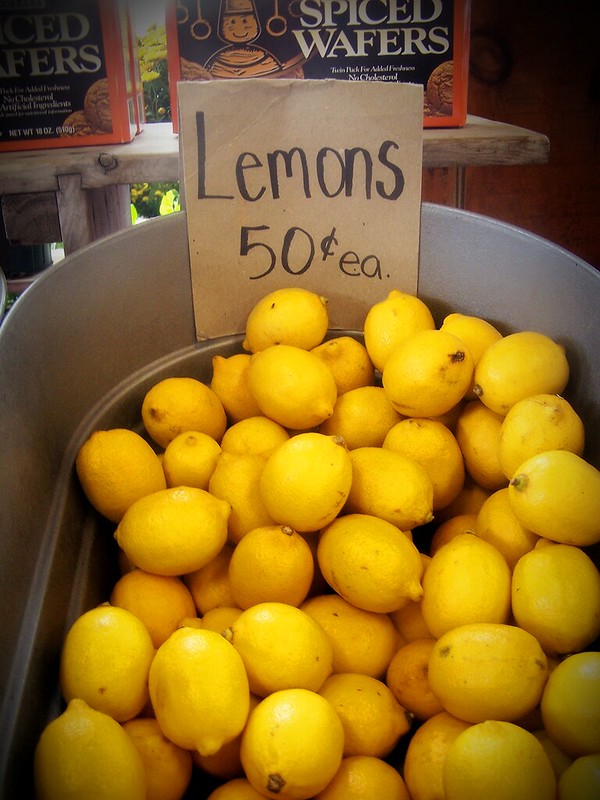 ICED
AFERS
Twin Pack For Added Freshness
No Cholesterol
Artificial Ingredients
NET WT 18 OZ. (510g)
SPICED
WAFERS
Twin Pack For Added Freshness
No Cholesterol
Lemons
50¢ ea.